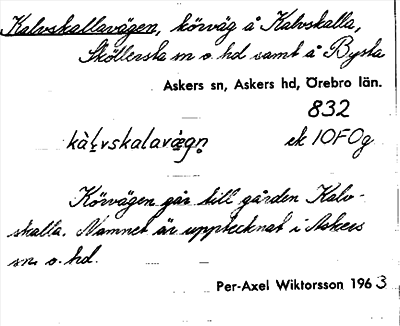 Kalvskallavägen, körväg å Kalvskalla,
Sköllersta sn o. hd samt å Bysta
Askers sn, Askers hd, Örebro län.
832
kàḷvskalavæ̀gn̥ ek 10F0g
Körvägen går till gården Kalv-
skalla. Namnet är upptecknat i Askers
sn o. hd.
Per-Axel Wiktorsson 1963